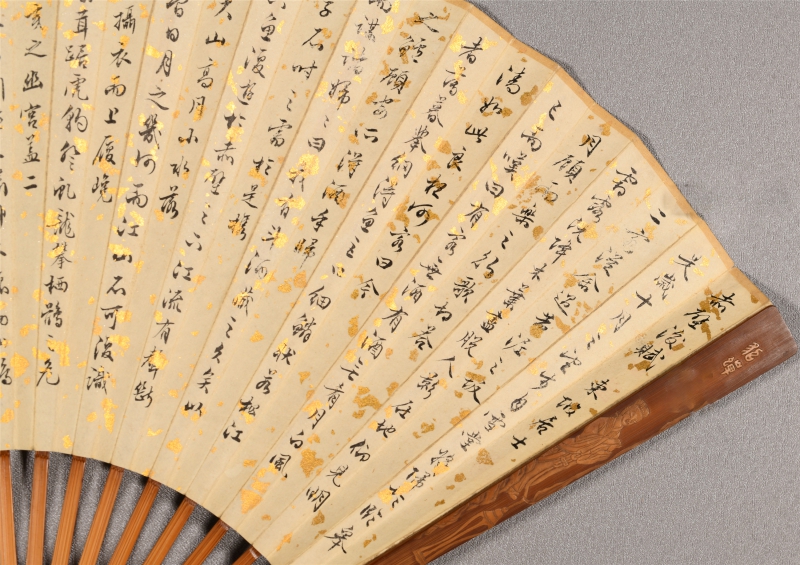 赤壁後賦
東坡居士
是歲十月之望步自雪堂將歸於臨皋
二客從予過黃泥之坂
霜露既降木葉盡脫人影在地仰見明
月顧而樂之行歌相答
已而嘆曰有客無酒有酒無肴月白風
清如此良夜何客曰今
者薄暮舉網得魚巨口細鱗狀若松江
之鱸顧安所得酒乎歸
而謀諸婦婦曰我有斗酒藏之久矣以
子不時之需於是攜
魚復遊於赤壁之下江流有聲斷
尺山高月小水落
曾日月之幾何而江山不可復識
攝衣而上履巉
茸踞虎豹登虬龍攀栖鶻之危
夷之幽宮蓋二